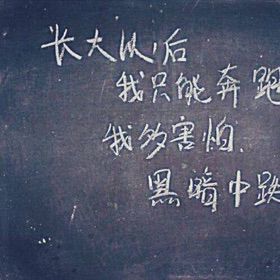 长大以后
我只能奔跑
我多害怕
黑暗中跌